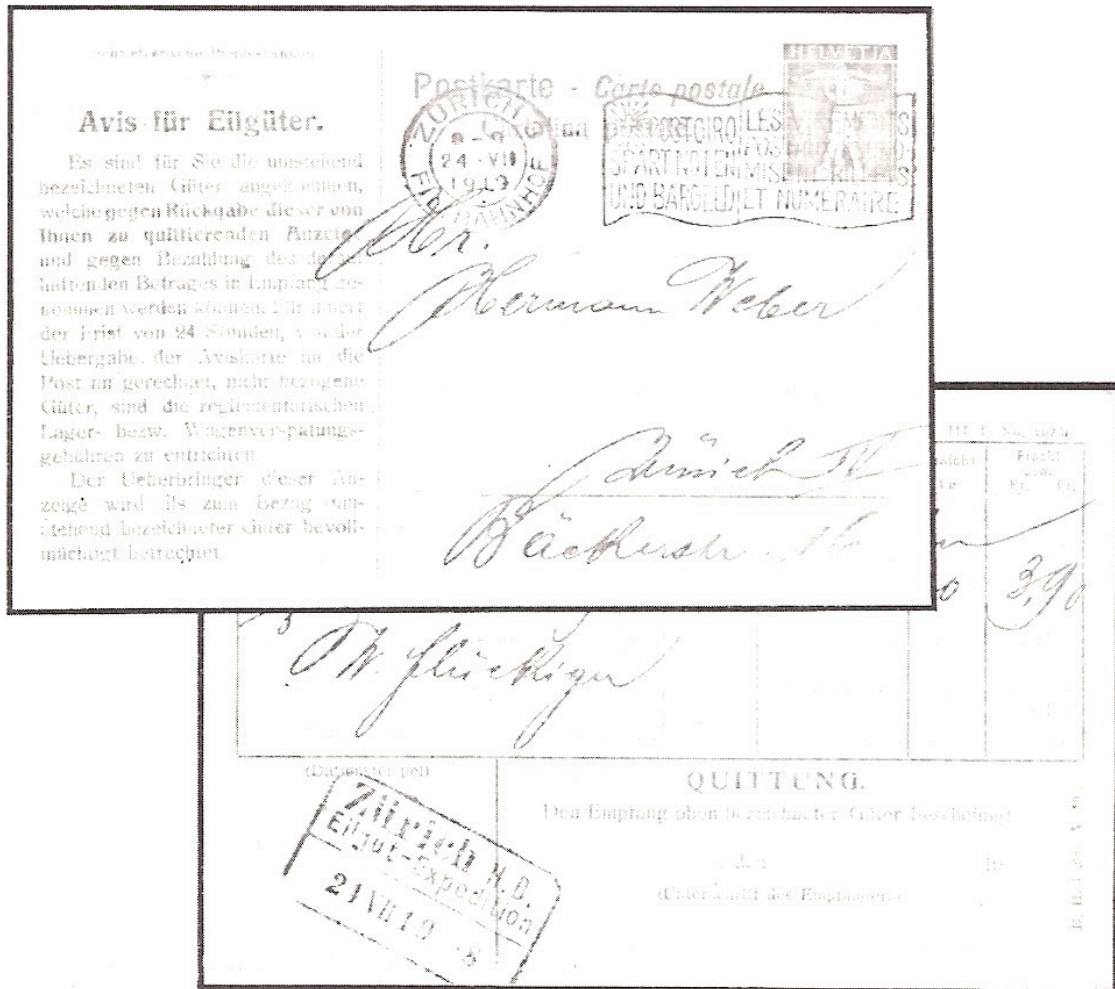 Avis für Eilgüter.
Es sind für Sie die umstehend
bezeichneten Güter angekommen,
welche gegen Rückgabe dieser von
Ihnen zu quittierenden Anzeige
und gegen Bezahlung des darauf
haftenden Betrages in Empfang ge-
nommen werden können. Für innert
der Frist von 24 Stunden, von der
Uebergabe der Aviskarte an die
Post an gerechnet, nicht bezogene
Güter, sind die reglementarischen
Lager- bezw. Wagenverspätungs-
gebühren zu entrichten.
Der Ueberbringer dieser An-
zeige wird als zum Bezug um-
stehend bezeichneter Güter bevoll-
mächtigt betrachtet.
Postkarte - Carte postale
HELVETIA
ZÜRICH 9
24·VII
1919
FIL. BAHNHOF
POSTGIRO
SPART NOTEN
UND BARGELD
LES
ET NUMERAIRE
Hr.
Hermann Weber
Zürich IV
Bäckerstr. 16
Fracht
Fr. Ct.
3.90
W. Flückiger
(Datumstempel)
Zürich H.B.
Eilgut-Expedition
24 VII 19 -8
QUITTUNG.
Den Empfang oben bezeichneter Güter bescheinigt
, den 19
(Unterschrift des Empfängers)